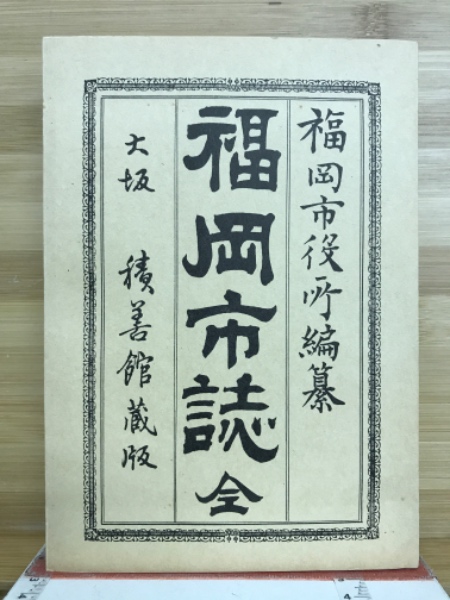 福岡市役所編纂
福岡市誌 全
大坂 積善館蔵版